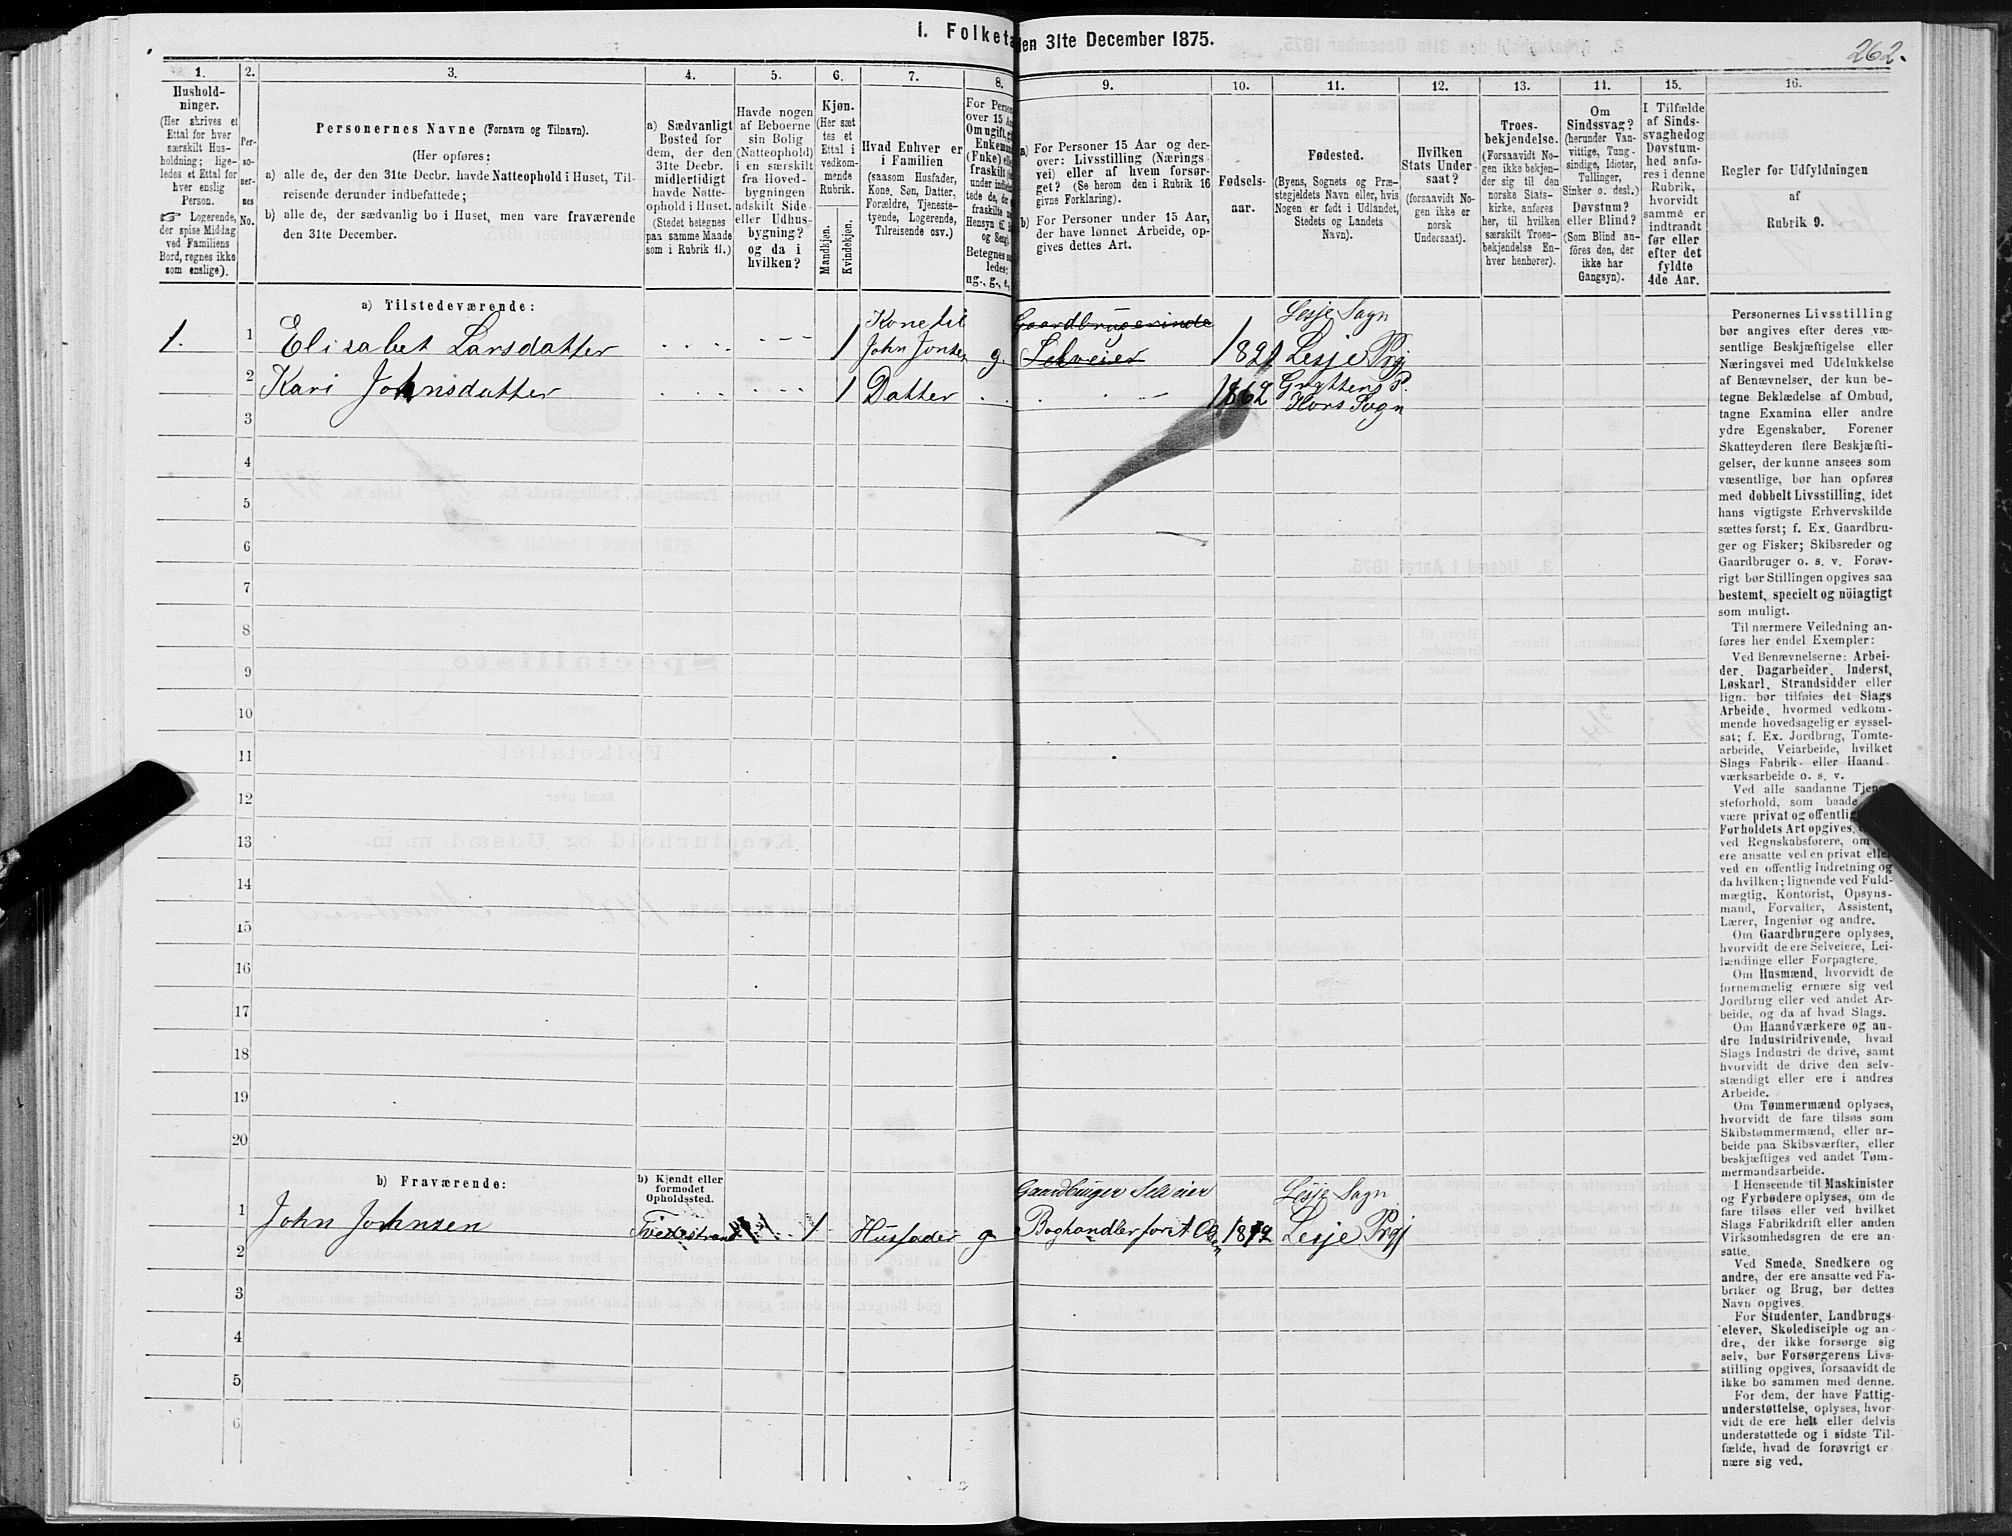 262.
I. Folketa
den 31te December 1875.
1.
2.
3.
4.
5.
6.
7.
8.
9.
10.
11.
12.
13.
14.
15.
16.
Hushold-
ninger.
(Her skrives et
Ettal for hver
særskilt Hus-
holdning; lige-
ledes et Ettal for
hver enslig
Person.
☞ Logerende,
der spise Middag
ved Familiens
Bord, regnes ikke
som enslige).
Per-
so-
ner-
nes
No.
Personernes Navne (Fornavn og Tilnavn).
(Her opføres:
a) alle de, der den 31te Decbr. havde Natteophold i Huset, Til-
reisende derunder indbefattede;
b) alle de, der sædvanlig bo i Huset, men vare fraværende
den 31te December.
a) Sædvanligt
Bosted for
dem, der den
31te Decbr.
midlertidigt
havde Natte-
ophold i Huset.
(Stedet betegnes
paa samme Maade
som i Rubrik 11.)
Havde nogen
af Beboerne
sin Bolig
(Natteophold)
i en særskilt
fra Hoved-
bygningen
adskilt Side-
eller Udhus-
bygning?
og da i
hvilken?
Kjøn.
(Her sæt
tes et
Ettal i
vedkom-
mende
Rubrik.
Mandkjøn.
Kvindekjøn.
Hvad Enhver er
i Familien
(saasom Husfader,
Kone, Søn, Datter,
Forældre, Tjeneste-
tyende, Logerende,
Tilreisende osv.)
For Person
over 15 Aa
Om ugift, gi
Enkem
(Fnke) el
fraskilt
under indbe
tede de, der
fraskilte
Hensyn til B
og Seng)
Betegnes s
ledes:
ug., g., e,
a) For Personer 15 Aar og der-
over: Livsstilling (Nærings-
vei) eller af hvem forsør-
get? (Se herom den i Rubrik 16
givne Forklaring).
b) For Personer under 15 Aar,
der have lønnet Arbeide, op-
gives dettes Art.
Fødsels-
aar.
Fødested.
(Byens, Sognets og Præ-
stegjeldets Navn eller, hvis
Nogen er født i Udlandet,
Stedets og Landets
Navn).
Hvilken
Stats Under-
saat?
(forsaavidt No-
gen ikke er
norsk
Undersaat).
Troes-
bekjendelse.
(Forsaavidt No-
gen ikke bekjen-
der sig til den
norske Stats-
kirke, anføres
her, til hvilken
særskilt Troes-
bekjendelse En-
hver henhører).
Om
Sindssvag?
(herunder Van-
vittige, Tung-
sindige, Idioter,
Tullinger,
Sinker o. desl.)
Døvstum?
eller Blind?
(Som Blind an-
føres den, der
ikke har
Gangsyn).
I Tilfælde
af Sinds-
svaghedog
Døvstum-
hed anfø-
res i denne
Rubrik,
hvorvidt
samme er
indtraadt
før eller
efter det
fyldte
4de Aar.
Regler før Udfyldningen
af
Rubrik 9.
a) Tilstedeværende:
1. 1 Elisabet Larsdatter 1 Kone til John Jonsen g. Gaardbrugerinde Selveier 1821 Lesje Sogn Lesje Prgj
2 Kari Johnsdatter 1 Datter 1862 Gryttens P. Hors Sogn
3
4
5
6
7
8
9
10
11
12
13
14
15
16
17
18
19
20
b) Fraværende:
b) Kjendt eller
formodet
Opholdssted.
1 John Johnsen Tvedestrand 1 Husfader g Gaardbruger Selveier Boghandler for A Olsen Lesje Sogn Lesje Prgj
2
3
4
5
6
Personernes Livsstilling
bør angives efter deres væ-
sentlige Beskjæftigelse eller
Næringsvei med Udelukkelse
af Benævnelser, der kun be-
tegne Beklædelse af Ombud,
tagne Examina eller andre
ydre Egenskaber. Forener
Skatteyderen flere Beskjæfti-
gelser, der kunne ansees som
væsentlige, bør han opføres
med dobbelt Livsstilling, idet
hans vigtigste Erhvervskilde
sættes først; f. Ex. Gaardbru-
ger og Fisker; Skibsreder og
Gaardbruger o. s. v. Forøv-
rigt bør Stillingen opgives saa
bestemt, specielt og nöiagtigt
som muligt.
Til nærmere Veiledning an-
føres her endel Exempler:
Ved Benævnelserne: Arbei-
der, Dagarbeider, Inderst,
Løskarl, Strandsidder eller
lign. bør tilføies det Slags
Arbeide, hvormed vedkom-
mende hovedsagelig er syssel-
sat; f. Ex. Jordbrug, Tomte-
arbeide, Veiarbeide, hvilket
Slags Fabrik- eller Haand-
værksarbeide o. s. v.
Ved alle saadanne Tjene
steforhold, som baade
være privat og offentlig
Forholdets Art opgives,
ved Regnskabsførere, om
ere ansatte ved en privat eller
ved en offentlig Indretning og
da hvilken; lignende ved Fuld-
mægtig, Kontorist, Opsyns-
mand, Forvalter, Assistent,
Lærer, Ingeniør og andre.
Om Gaardbrugere oplyses,
hvorvidt de ere Selveiere, Lei-
lændinge eller Forpagtere.
Om Husmænd, hvorvidt de
fornemmelig ernære sig ved
Jordbrug eller ved andet Ar-
beide, og da af hvad Slags.
Om Haandværkere og an-
dre Industridrivende, hvad
Slags Industri de drive, samt
hvorvidt de drive den selv-
stændigt eller ere i andres
Arbeide.
Om Tømmermænd oplyses,
hvorvidt de fare tilsøs som
Skibstømmermænd, eller ar-
beide paa Skibsværfter, eller
beskjæftiges ved andet Tøm-
mermandsarbeide.
I Henseende til Maskinister
og Fyrbødere oplyses, om de
fare tilsøs eller ved hvilket
Slags Fabrikdrift eller anden
Virksomhedsgren de ere an-
satte.
Ved Smede, Snedkere og
andre, der ere ansatte ved Fa-
briker og Brug, bør dettes
Navn opgives.
For Studenter, Landbrugs-
elever, Skoledisciple og an-
dre, der ikke forsørge sig
selv, bør Forsørgerens Livs-
stilling opgives, forsaavidt de
ikke bo sammen med denne.
For dem, der have Fattig-
understøttelse, oplyses, hvor-
vidt de ere helt eller delvis
understøttede og i sidste Til-
fælde, hvad de forøvrigt er-
nære sig ved.